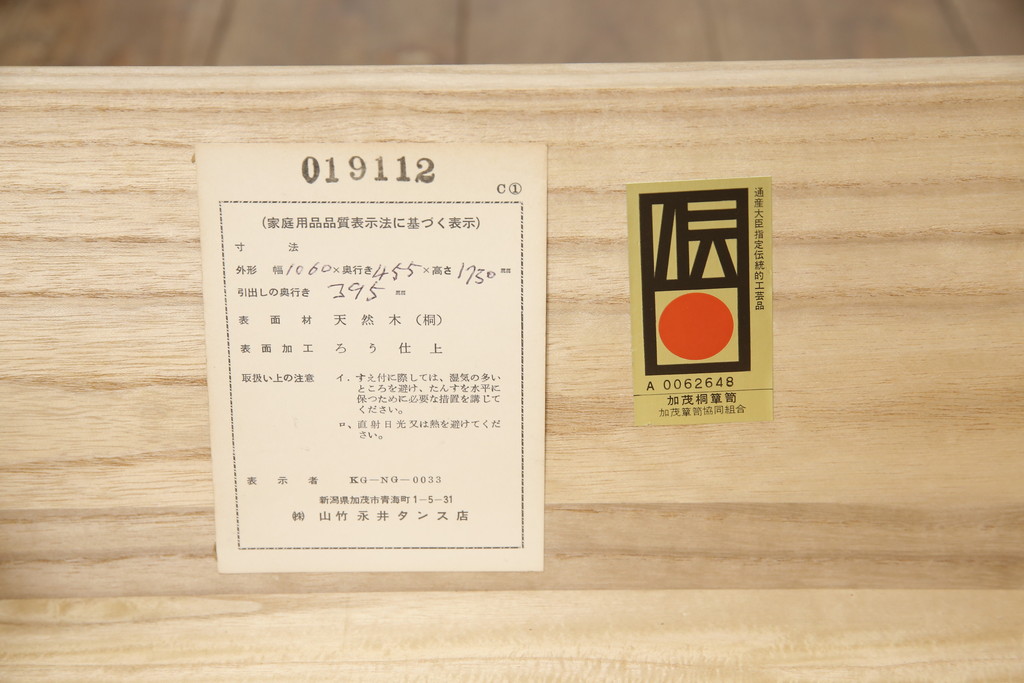 019112
C①
(家庭用品品質表示法に基づく表示)
寸 法
外形 幅1060×奥行き455×高さ1730 mm
引出しの奥行き 395 mm
表面材 天然木(桐)
表面加工 ろう仕上
取扱い上の注意 イ．すえ付に際しては、湿気の多い
ところを避け、たんすを水平に
保つために必要な措置を講じて
ください。
ロ、直射日光又は熱を避けてくだ
さい。
表示者 KG－NG－0033
新潟県加茂市青海町1－5－31
㈱ 山竹永井タンス店
通産大臣指定伝統的工芸品
伝
A 0062648
加茂桐簞笥
加茂簞笥協同組合